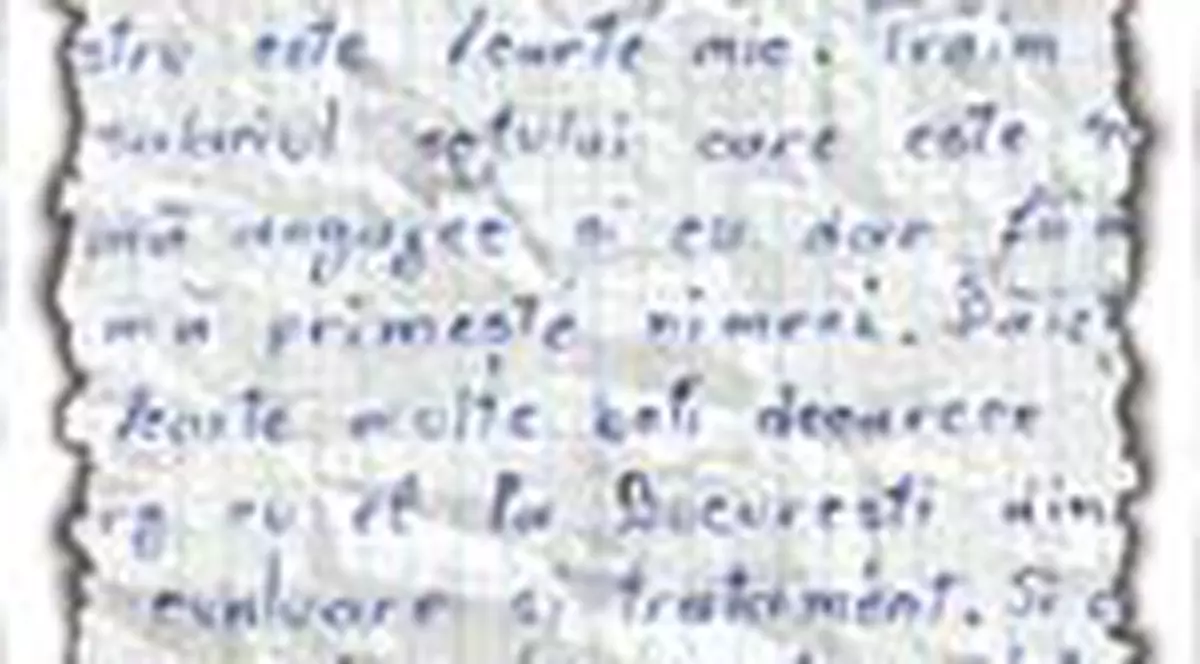 stru este foarte mic. Traim
salariul soțului care este
mă angajez și eu dar
mă primește nimeni.
foarte mulțe bani deoarece
rg cu el la București din
evaluare și tratament. Si